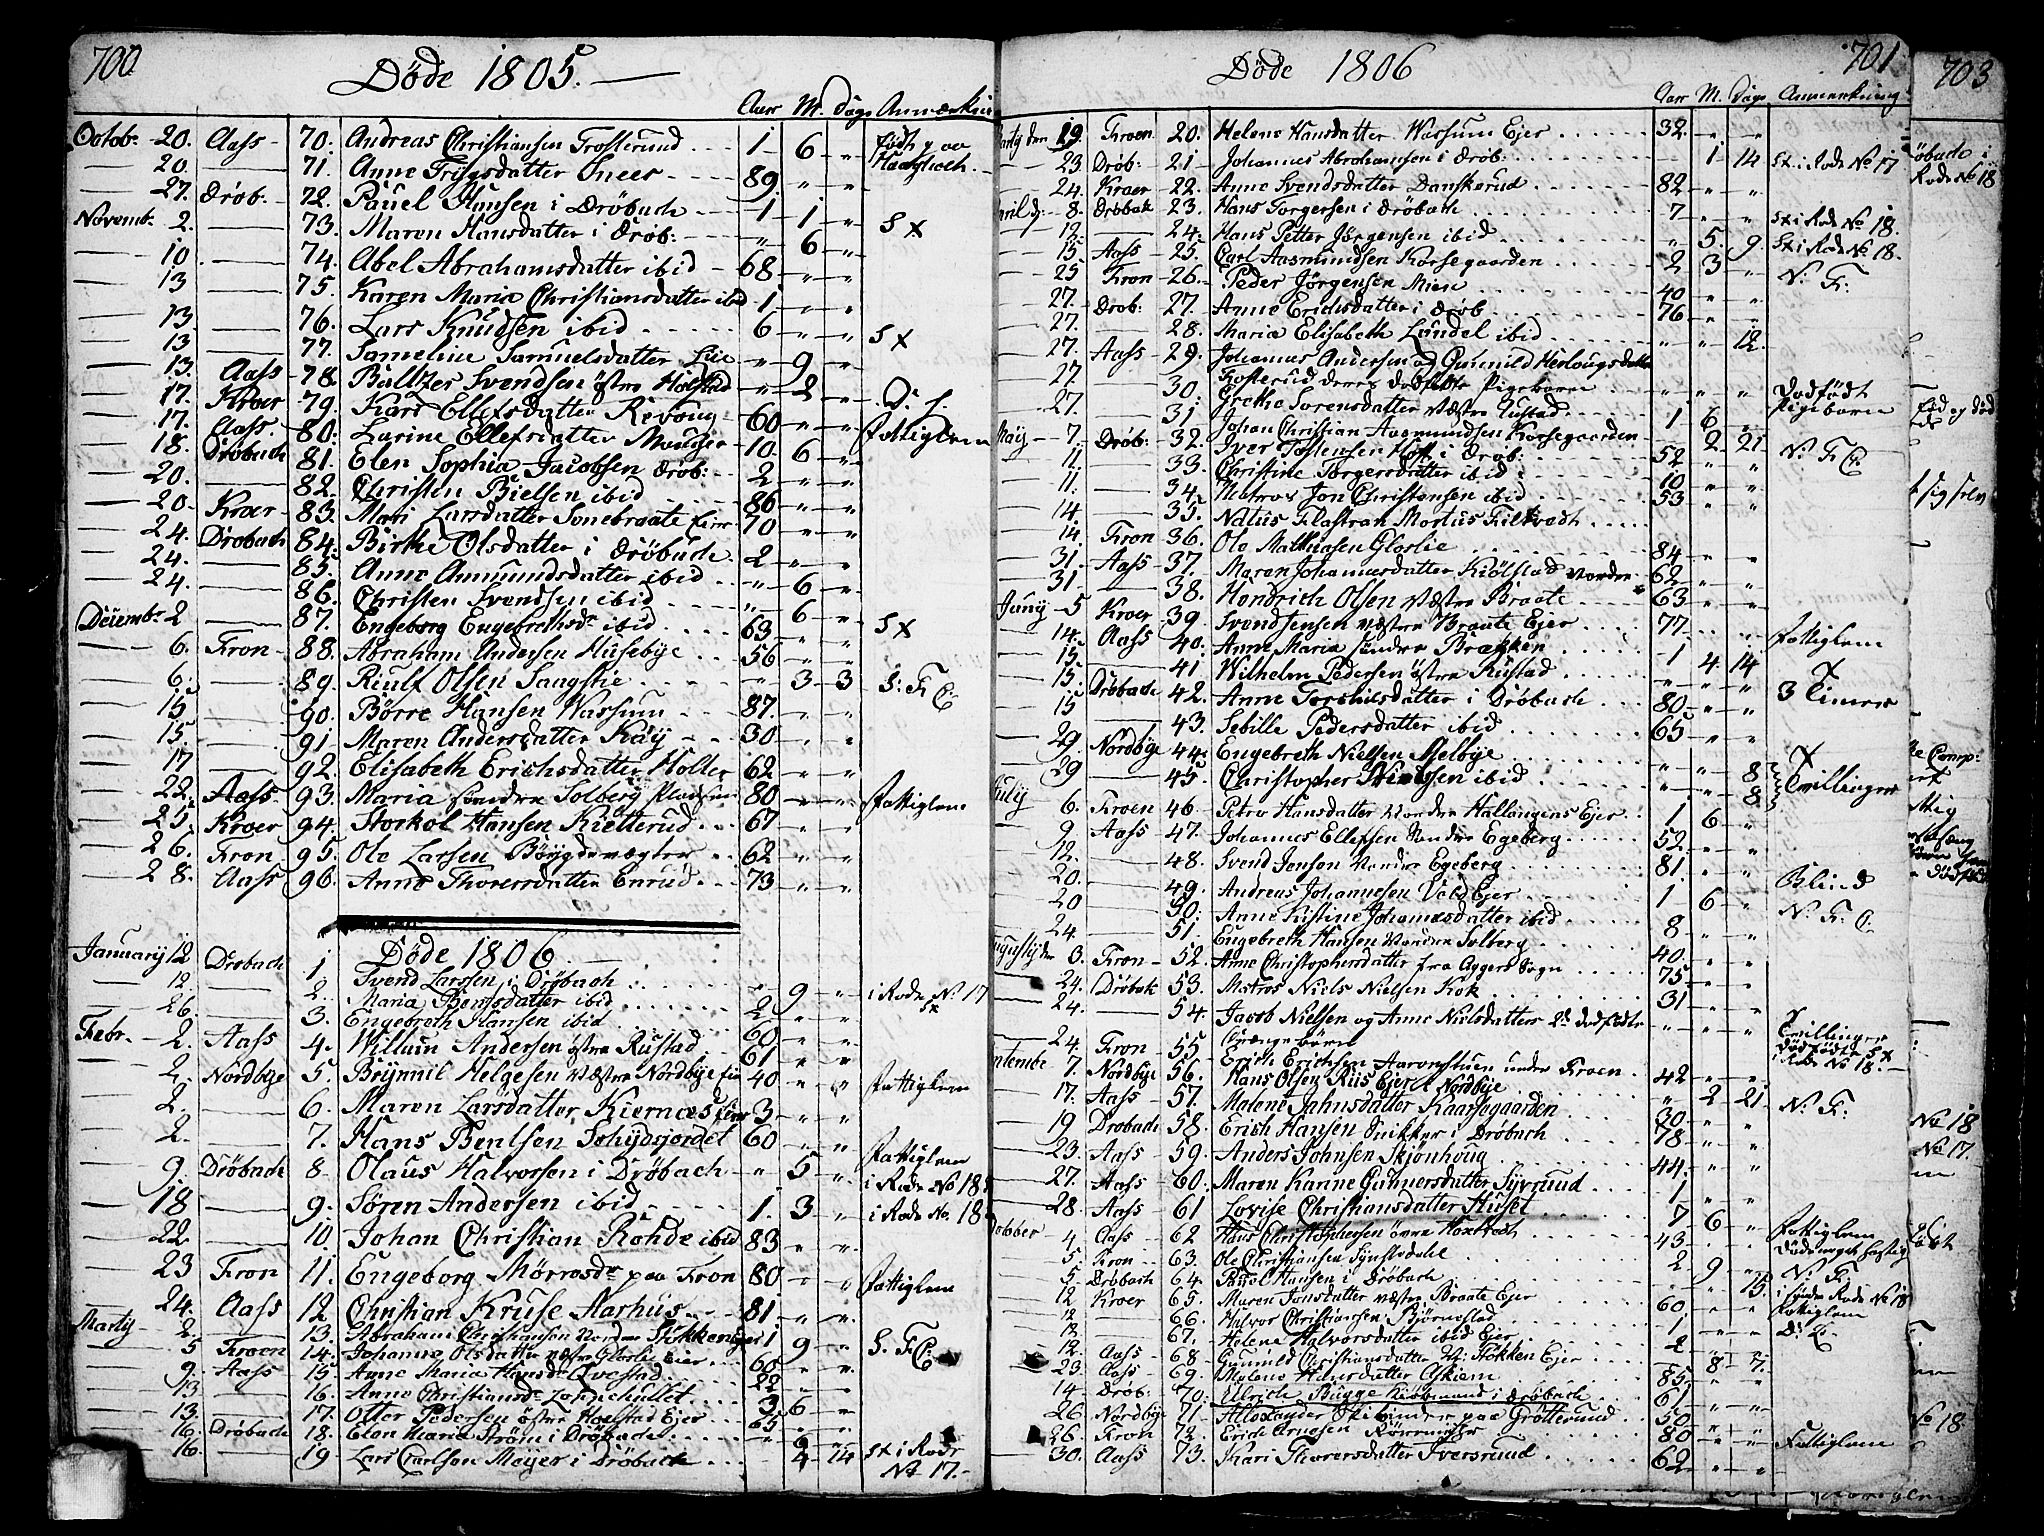 700
Døde 1805.
Aar M. Dage Anmærkni
Octob: 20. Aass 70. Andreas Christiansen Frosterud 1 6 „ født paa
20. 71. Anne Trygsdatter Snees 89 „ „
27. Drøb: 72. Pauel Hansen i Drøbach 1 1 „
Novemb: 2. 73. Maren Hansdatter i Drøb: „ 6 „ S X
10 74. Abel Abrahamsdatter ibid 68 „ „
13 75. Karen Maria Christiansdatter ibid 1 „ „
13 76. Lars Knudsen ibid 6 „ „ S X
13 77. Sameline Samuelsdatter Lie „ 9 „
13. Aass 78. Baltzer Svendsen østre Holstad „ 2 „ D. f.
17. Kroer 79. Kari Ellefsdatter Revoug 60 „ „ Fattiglem
17. Aass. 80. Larine Ellefsdatter 10. 6 „
18. Drøbach 81. Elen Sophia Jacobsen Drøb: 2 „ „
20. 82. Christen Bielsen ibid 86 „ „
20. Kroer 83. Mari Larsdatter Sonebraate Eier 70 „ „
24. Drøbach 84. Birthe Olsdatter i Drøbach 2 „ „
24. 85. Anne Amundsdatter ibid „ 6 „
24. 86. Christen Svendsen ibid „ 6 „
Deiembr 2 87. Engeborg Engebrethsdr ibid 63 „ „ S X
6. Fron 88. Abraham Andersen Husebye 56 „ „
6. 89. Riulf Olsen Sangstie „ 3 3 S: F C
15 90. Børre Hansen Wassum 87. „ „
15. 91 Maren Andersdatter Ray 30 „ „
17 92. Elisabeth Erichsdatter Holter 62 „ „
22. Aass. 93. Maria søndre Solberg Pladsen 80 „ „ Fattiglem
25 Kroer 94. Storkol Hansen Kietterud 67 „ „
26. Fron 95. Ole Larsen Bøygdevægter 62 „ „
28. Aass 96. Anne Thoversdatter Enrud 73 „ „
Døde 1806.
January 12 Drøbach 1 Svend Larssen i Drøbach „ 9 „ i Rode No 17
12 2. Maria Berntsdatter ibid 2 „ „ SX
26. 3. Engebreth Hansen ibid 60 „ „
Febr. 2. Aass 4. Willum Andersen østre Rustad 61 „ „
2. Nordbye 5. Brynnil Helgesen Væstre Nordbye Eier 40 „ „ Fattiglem
2. 6. Maren Larsdatter Kiernæs Eier 3 „ „
2. 7. Hans Bentsen 60 „ „ Fattiglem
9. Drøbach 8. Olaus Halvorsen i Drøbach „ 5 „ i Rode No 18
18 9. Søren Andersen ibid 1. 3 „ i Rode No. 18
22. 10 Johan Christian Rohde ibid 83 „ „
23 Fron 11. Engeborg Mørresdr paa Fron 80 „ „ Fattiglem
24. Aass 12. Christian Kruse Aarhus 81. „ „
Marty 2. 13. Abraham Christiansen Nordre Støkken Eier 1 9 „ S. F C:
5 Froen 14. Johanne Olsdatter væstre Glorlie Eier 60 „ „
9. Aass 15 Anne Maria Hansdr Qvestad 22 „ „
13 16. Anne Christiansdr 3 6 „
13. 17. Otter Pedersen østre Holstad Ejer 65 „ „
16. Drøbach 18. Elen Maria Strøm i Drøbach „ „ „
16. 19 Lars Carlsen Meyer i Drøbach „ 4 14 St i Rode
No 17.
701
Døde 1806
Aar M. Dage Anmerkning
Marty den 19. Froen 20. Helene Hansdatter Wassum Ejer 32 „ „
23. Drøb 21 Johannes Abrahamsen i Drøb: „ 1 14 St i Rode No 17
24. Kroer 22. Anne Svendsdatter Danskerud 82 „ „
April d: 8. Drøbak 23. Hans Torgersen i Drøbach 7 „ „ St i Rode No 18.
12. 24. Hans Petter Jørgensen ibid „ 5 9 St i Rode No 18.
15 Aass 25. Carl Aasmundsen Korsegaarden 2 3 „ N: F:
25 Fron 26. Peder Jørgensen Mien 40 „ „
27. Drøb: 27. Anne Erichsdatter i Drøb 76 „ „
27. 28. Maria Elisabeth Lundel ibid „ „ 12.
27. Aass 29. Johannes Andersen og Gunnild Herlougsdatter
27. 30. Fosterud deres dødfødte Pigebarn „ „ „ Dødfødt
Pigebarn
27. 31. Grethe Sørensdatter væstre Rustad 1 6 „
May 7. Drøb: 32. Johan Christian Aasmundsen Korsegaarden „ 2 21 N: F C:
11. 33. Iver Tostensen Holt i Drøb: 52 „ „
11. 34. Christine Torgersdatter ibid 10 „ „
14. 35. Matros Jon Christensen ibid 53 „ „
14. Fron 36. Natus Flastran Mortus Filtvedt
31. Aass 37. Ole Mathiasen Glorlie 84 „ „
31. 38. Maren Johannesdatter Kiølstad Nordre 62 „ „
Juny 5 Kroer 39. Hendrich Olsen væstre Braate 63 „ „
14. Aass 40. Svendsensen væstre Braate Ejer 77 „ „ Fattiglem
15 41 Anne Maria søndre Brækken 1 4 14
15. Drøbach 42. Wilhelm Pedersen østre Rustad „ „ „ 3 Timer
15 43. Anne Torskilsdatter i Drøbach 80 „ „
29. Nordbye 44. Sebille Pedersdatter ibid 65 „ „
29 45. Engebreth Nielsen Melbye „ „ 8 Tvillinger
Christopher Nielsen ibid „ „ 8
July 6. Froen 46. Petro Hansdatter Nordre Hallangens Ejer 1 6 „
9. Aass 47. Johannes Ellefsen Nordre Egeberg 52 „ „
12. 48. Svend Jensen Nordre Egeberg 81. „ „ Blind
20. 49. Andreas Johannesen Vold Ejer 1 6 „ N: F: C
20 50. Anne Kistine Johannesdatter ibid 8 „ „
24. 51. Engebreth Hansen Nordre Solberg 40. „ „
Augusty den 3. Fron 52. Anne Christophersdatter fra Aggers Sogn 75 „ „
24. Drøbak 53. Matros Niels Nielsen Kok 31 „ „
24. 54 Jacob Nielsen og Anne Nielsdatters 2de dødfødte „ „ „ Tvillinger
24. Fron 55 Drænge børn dødfødte SX
Septembe 7. Nordbye 56. Erich Erichsen Aarvoldstuen under Froen 42 „ „ i Rode No 18.
17. Aass 57. Hans Olsen Riis Ejer Nordbye „ 2 21 N: F:
19 Drøbach 58. Malene Jahnsdatter Kaarsegaarden 30 „ „
23. Aass 59. Erich Hansen Snikker i Drøbach 78 „ „
27. Aass 60. Anders Johnsen Skiønhoug 44. „ „
28. Aass 61 Maren Karine Gulmersdatter Syverud 1 „ „
Lovise Christiansdatter Huset 7 6 „ Fattiglem
October 4 Aass 62 Hans Christophersen øvre Haxstedt 43 „ „ Døde meget hastig
5. Fron 63. Ole Christiansen Synstedalie 2 9 „ N: F:
5 Drøbach 64. Paul Hansen i Drøbach „ „ 15. i Søndre Rode No 18
12 Kroer 65. Maren Jonsdatter væstre Braate Ejer 60. „ „ Fattiglem
12 66. Halvor Christiansen Bjørnstad 1 „ „ D: L:
12 67. Helene Halvorsdatter ibid Ejer 2 „ „
12. Aass 68 Gunnild Christiansdatter N: Støkken Ejer „ 8 7.
23. Aass 69. Malene Hansdatter Askiem 85. „ „
14 Drøb: 70. Ellrich Bugge Kiøbmand i Drøbach 61 „ „
26. Nordbye 71. Allexander Skibinder paa Grøtterund 50 „ „
26. Fron 72. Erich Arnesen Rørmyhr 80 „ „ Fattiglem
30. Aass 73. Kari Thorersdatter Iversrund 62 „ „
703
øbach i
Rode No 18
Død og død
sig selv
No 18
No 17.
No 18